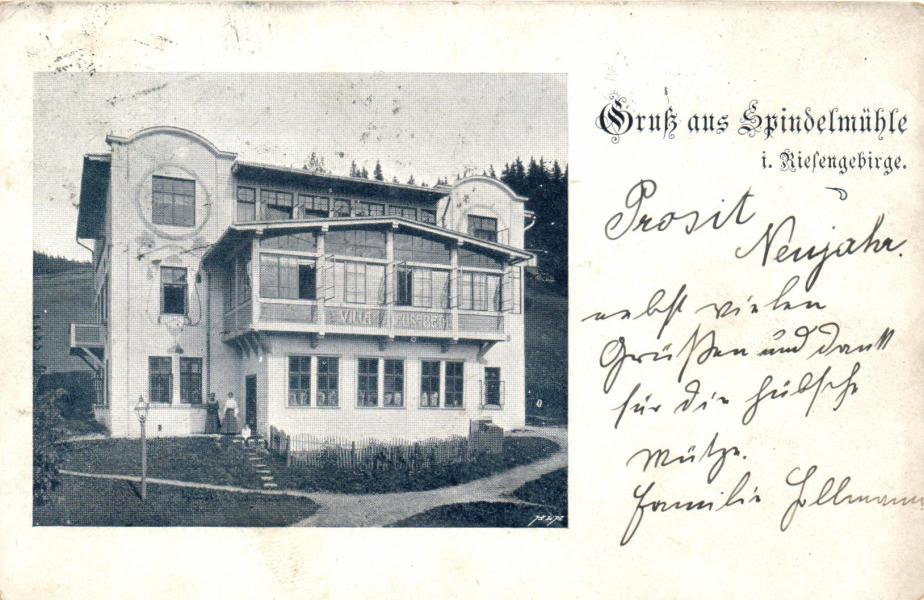 Gruß aus Spindelmühle
i. Riesengebirge.
Prosit
Neujahr.
nebst vielen
Grüßen und Dank
für die hübsche
Mütze.
Familie Hollmann
VILLA